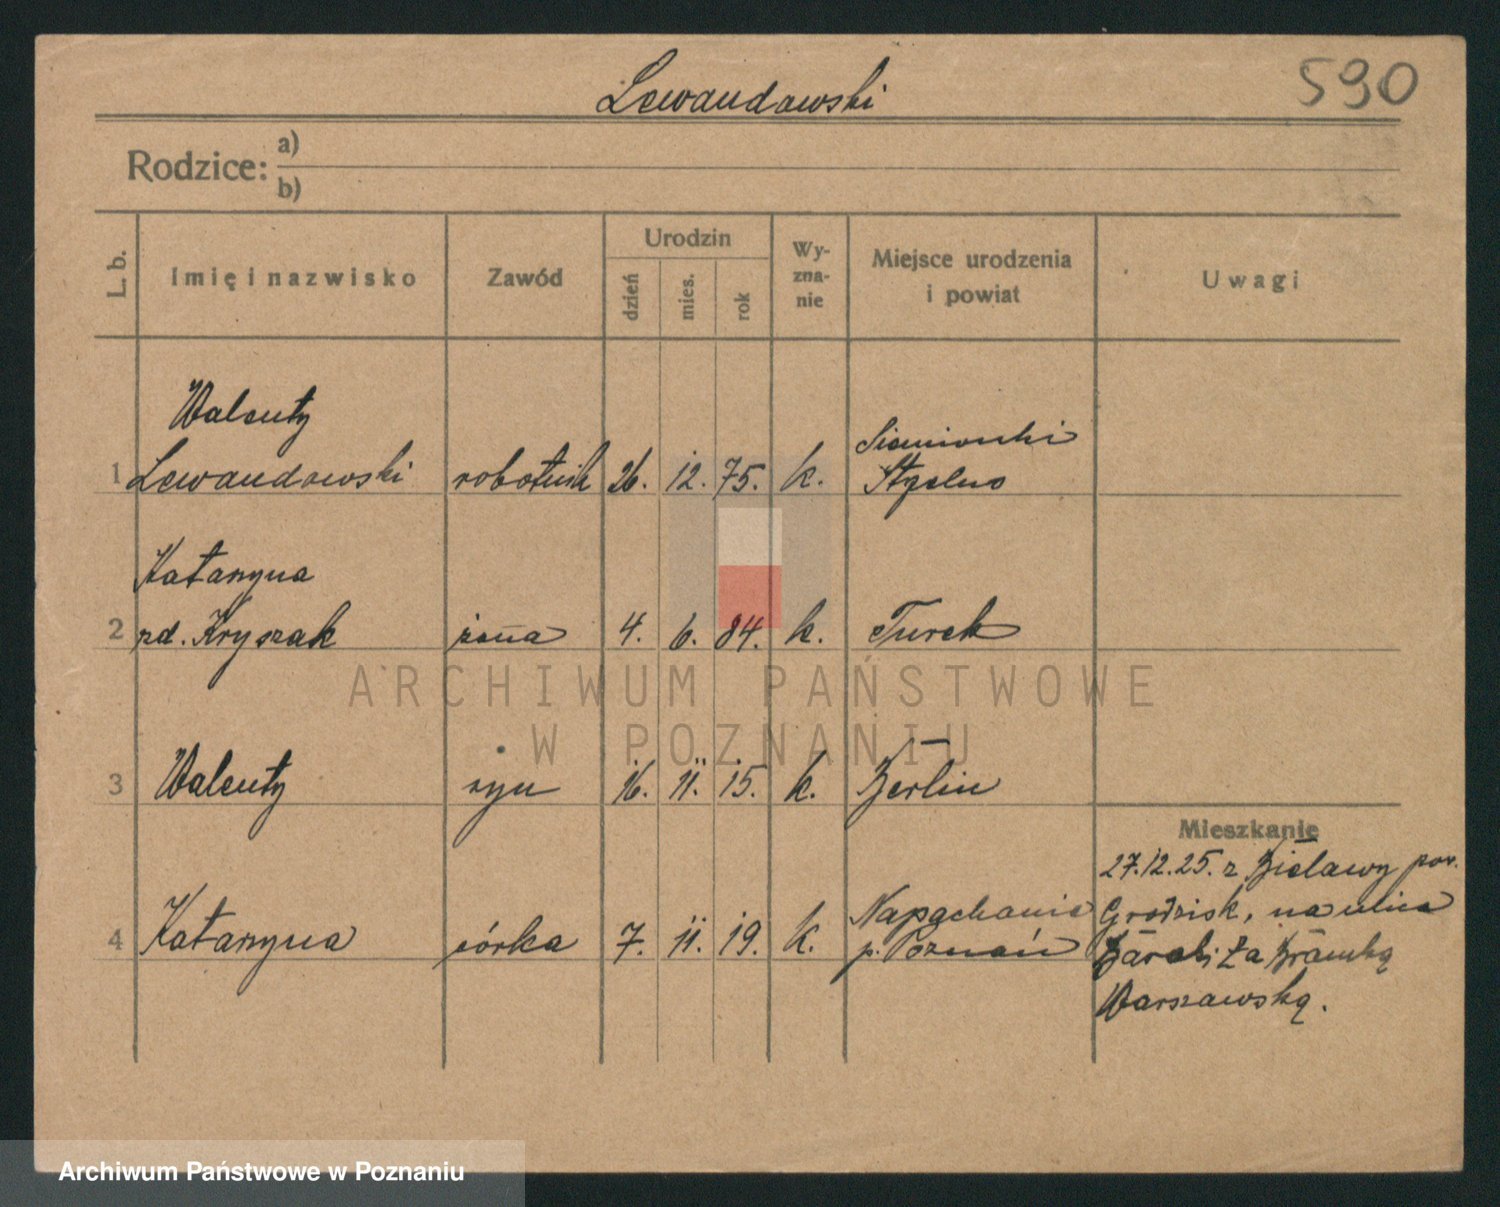 Lewandowski
590
Rodzice: a)
b)
L. b.
Imię i nazwisko
Zawód
Urodzin
dzień
mies.
rok
Wy-
zna-
nie
Miejsce urodzenia
i powiat
Uwagi
Walenty
1 Lewandowski robotnik 26. 12. 75. k.
Katarzyna
2 rd. Kryszak żona 4. 6. 84. k. Turek
3 Walenty syn 16. 11. 15. k. Berlin
4 Katarzyna córka 7. 11. 19. k. Napachanie
p. Poznań
Mieszkanie
27.12.25. z Bielawy pow.
Grodzisk, na ulica
za Bramką
Warszawską.
ARCHIWUM PAŃSTWOWE
W POZNANIU
Archiwum Państwowe w Poznaniu